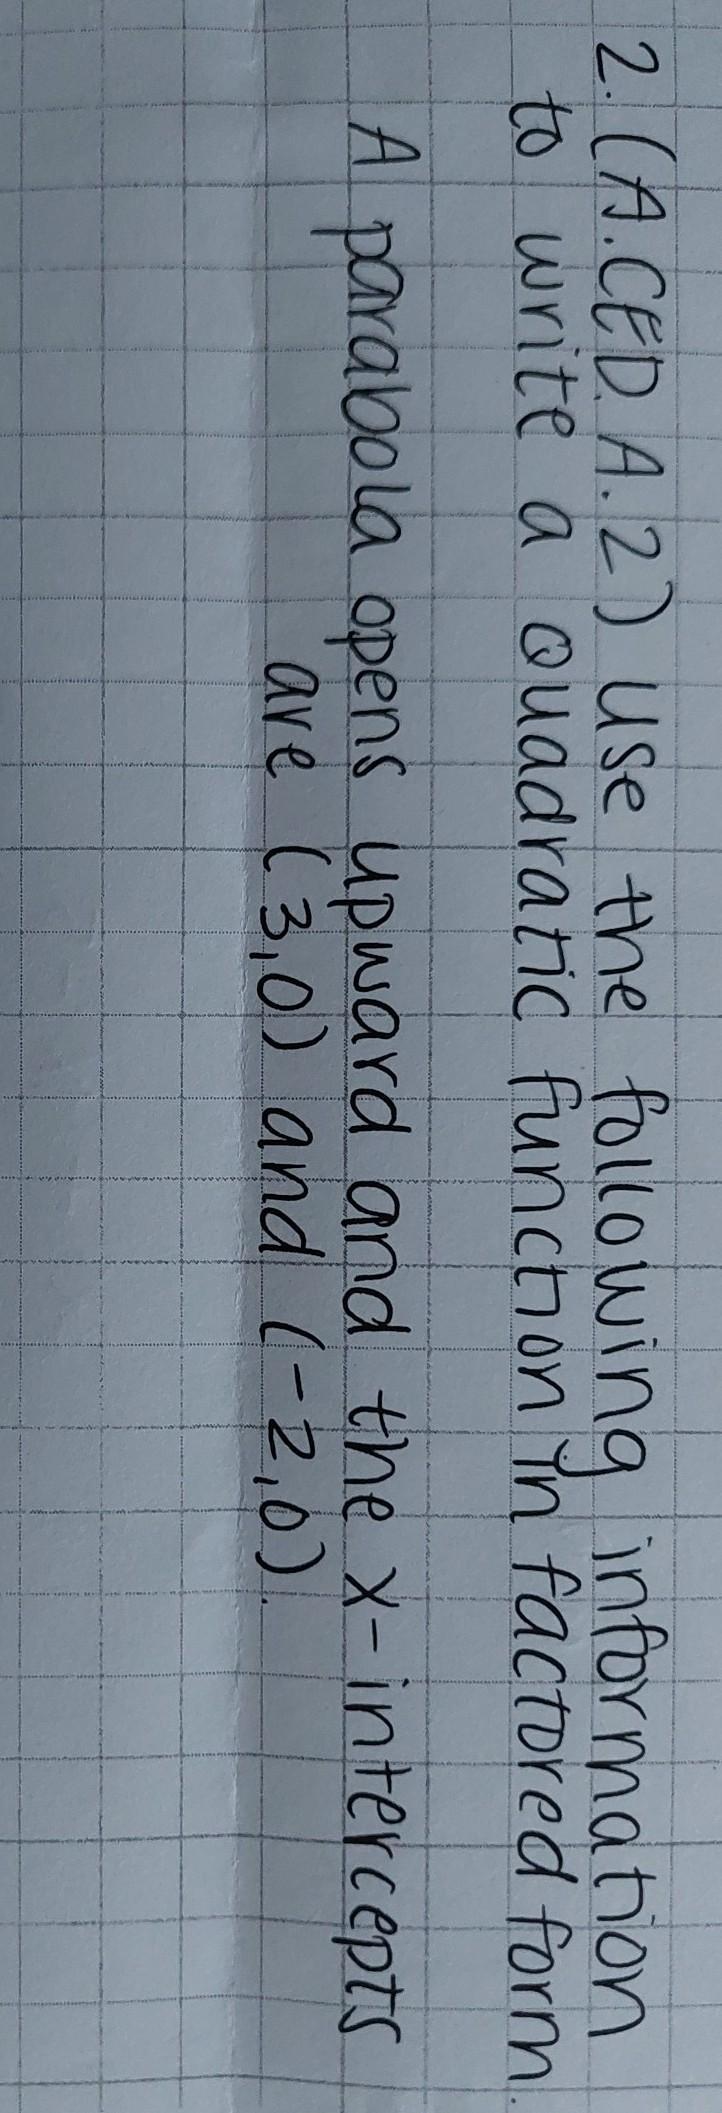 2. (A.CED.A.2) Use the following information
to write a quadratic function in factored form.
A parabola opens upward and the x-intercepts
are (3,0) and (-2,0).